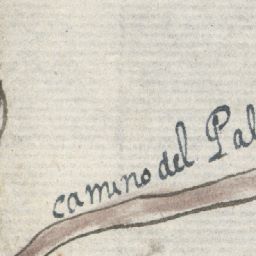 camino del Pal